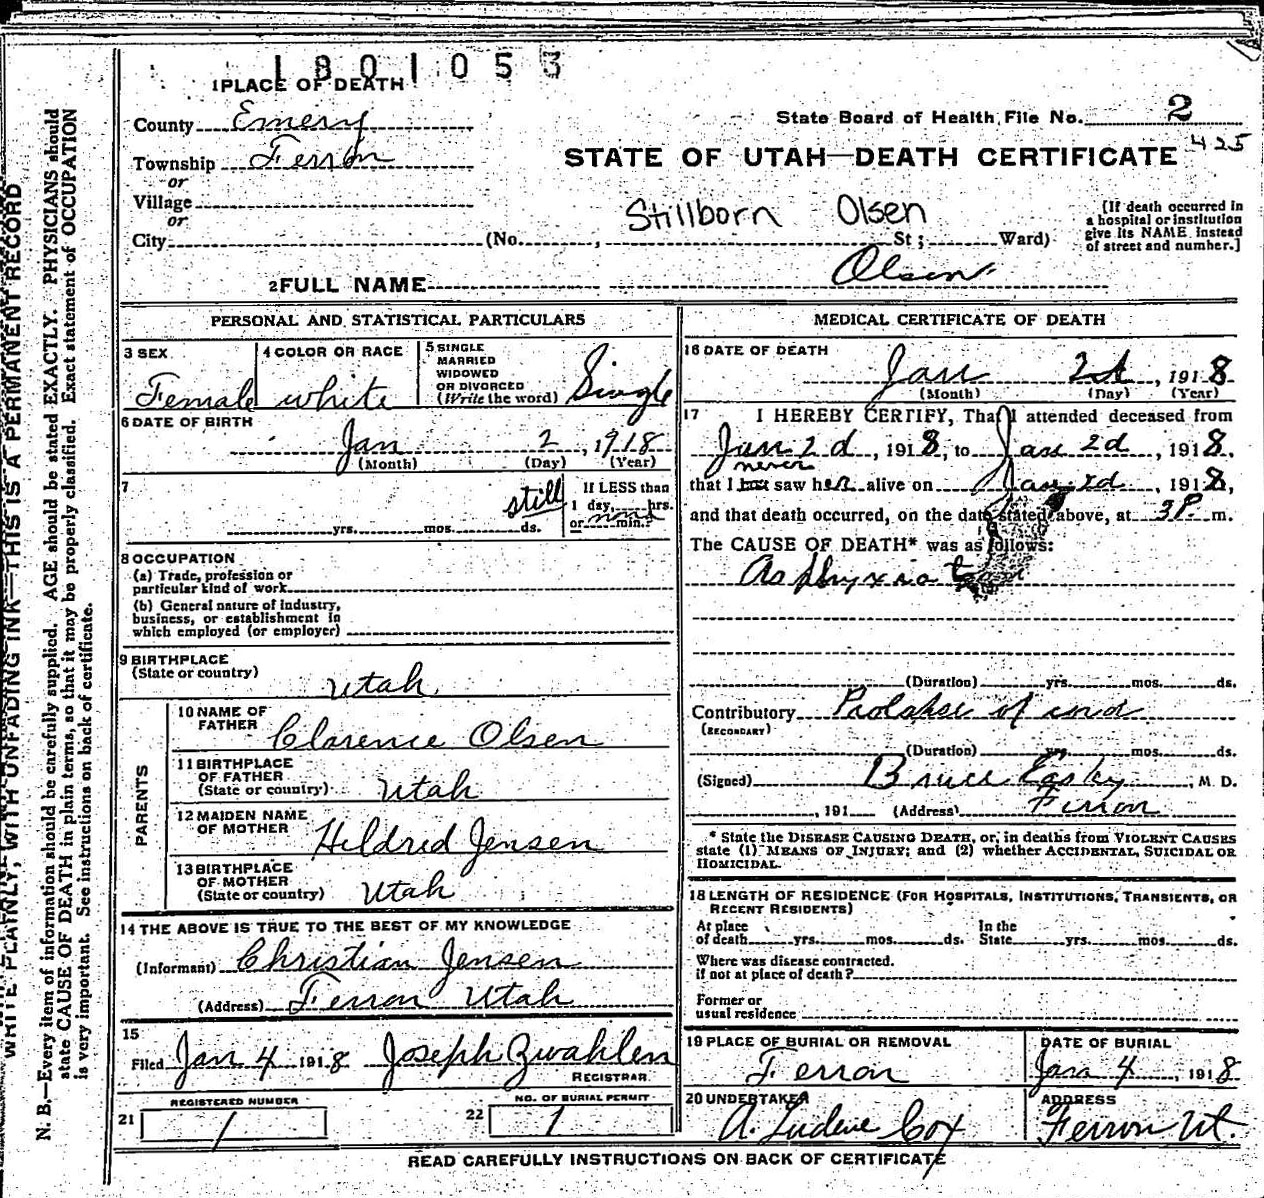 1801053
1 PLACE OF DEATH
County Emery
State Board of Health File No. 2
425
Township Ferron
STATE OF UTAH—DEATH CERTIFICATE
or
Village
or
Stillborn Olsen
City (No. , St; Ward)
[If death occurred in
a hospital or institution
give its NAME instead
of street and number.]
2 FULL NAME Olsen
PERSONAL AND STATISTICAL PARTICULARS
3 SEX
Female
4 COLOR OR RACE
white
5 SINGLE
MARRIED
WIDOWED
OR DIVORCED
(Write the word) Single
6 DATE OF BIRTH
Jan 2, 1918
(Month) (Day) (Year)
7
still
yrs. mos. ds.
If LESS than
1 day, hrs.
or min.?
8 OCCUPATION
(a) Trade, profession or
particular kind of work
(b) General nature of industry,
business, or establishment in
which employed (or employer)
9 BIRTHPLACE
(State or country)
Utah
PARENTS
10 NAME OF
FATHER Clarence Olsen
11 BIRTHPLACE
OF FATHER
(State or country) Utah
12 MAIDEN NAME
OF MOTHER Hildred Jensen
13 BIRTHPLACE
OF MOTHER
(State or country) Utah
14 THE ABOVE IS TRUE TO THE BEST OF MY KNOWLEDGE
(Informant) Christian Jensen
(Address) Ferron Utah
15
Filed Jan 4 1918 Joseph Zwahlen
REGISTRAR
REGISTERED NUMBER
21 1
NO. OF BURIAL PERMIT
22 1
MEDICAL CERTIFICATE OF DEATH
16 DATE OF DEATH
Jan 2d, 1918
(Month) (Day) (Year)
17 I HEREBY CERTIFY, That I attended deceased from
Jan 2d, 1918, to Jan 2d 1918,
never
that I last saw her alive on Jan 2d, 1918,
and that death occurred, on the date stated above, at 3 P. m.
The CAUSE OF DEATH* was as follows:
Asphyxiation
(Duration) yrs. mos. ds.
Contributory Prolapse of cord
(SECONDARY)
(Duration) yrs. mos. ds.
(Signed) Bruce Easley, M. D.
, 191 (Address) Ferron
* State the DISEASE CAUSING DEATH, or, in deaths from VIOLENT CAUSES
state (1) MEANS OF INJURY; and (2) whether ACCIDENTAL, SUICIDAL OR
HOMICIDAL.
18 LENGTH OF RESIDENCE (FOR HOSPITALS, INSTITUTIONS, TRANSIENTS, OR
RECENT RESIDENTS)
At place
of death yrs. mos. ds.
In the
State yrs. mos. ds.
Where was disease contracted.
if not at place of death?
Former or
usual residence
19 PLACE OF BURIAL OR REMOVAL
Ferron
DATE OF BURIAL
Jan 4, 1918
20 UNDERTAKER
A. Ludene Cox
ADDRESS
Ferron Ut.
READ CAREFULLY INSTRUCTIONS ON BACK OF CERTIFICATE
WRITE PLAINLY, WITH UNFADING INK—THIS IS A PERMANENT RECORD
N. B.—Every item of information should be carefully supplied. AGE should be stated EXACTLY. PHYSICIANS should
state CAUSE OF DEATH in plain terms, so that it may be properly classified. Exact statement of OCCUPATION
is very important. See instructions on back of certificate.